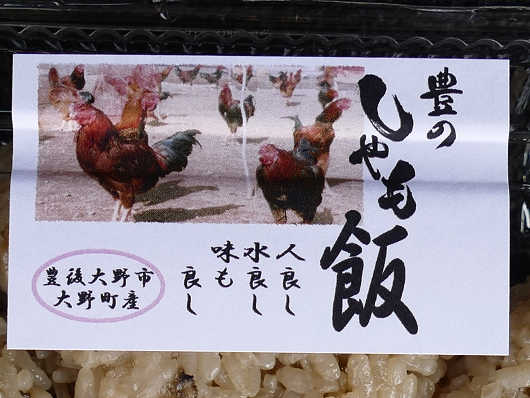 豊の
しゃも飯
人良し
水良し
味も
良し
豊後大野市
大野町産